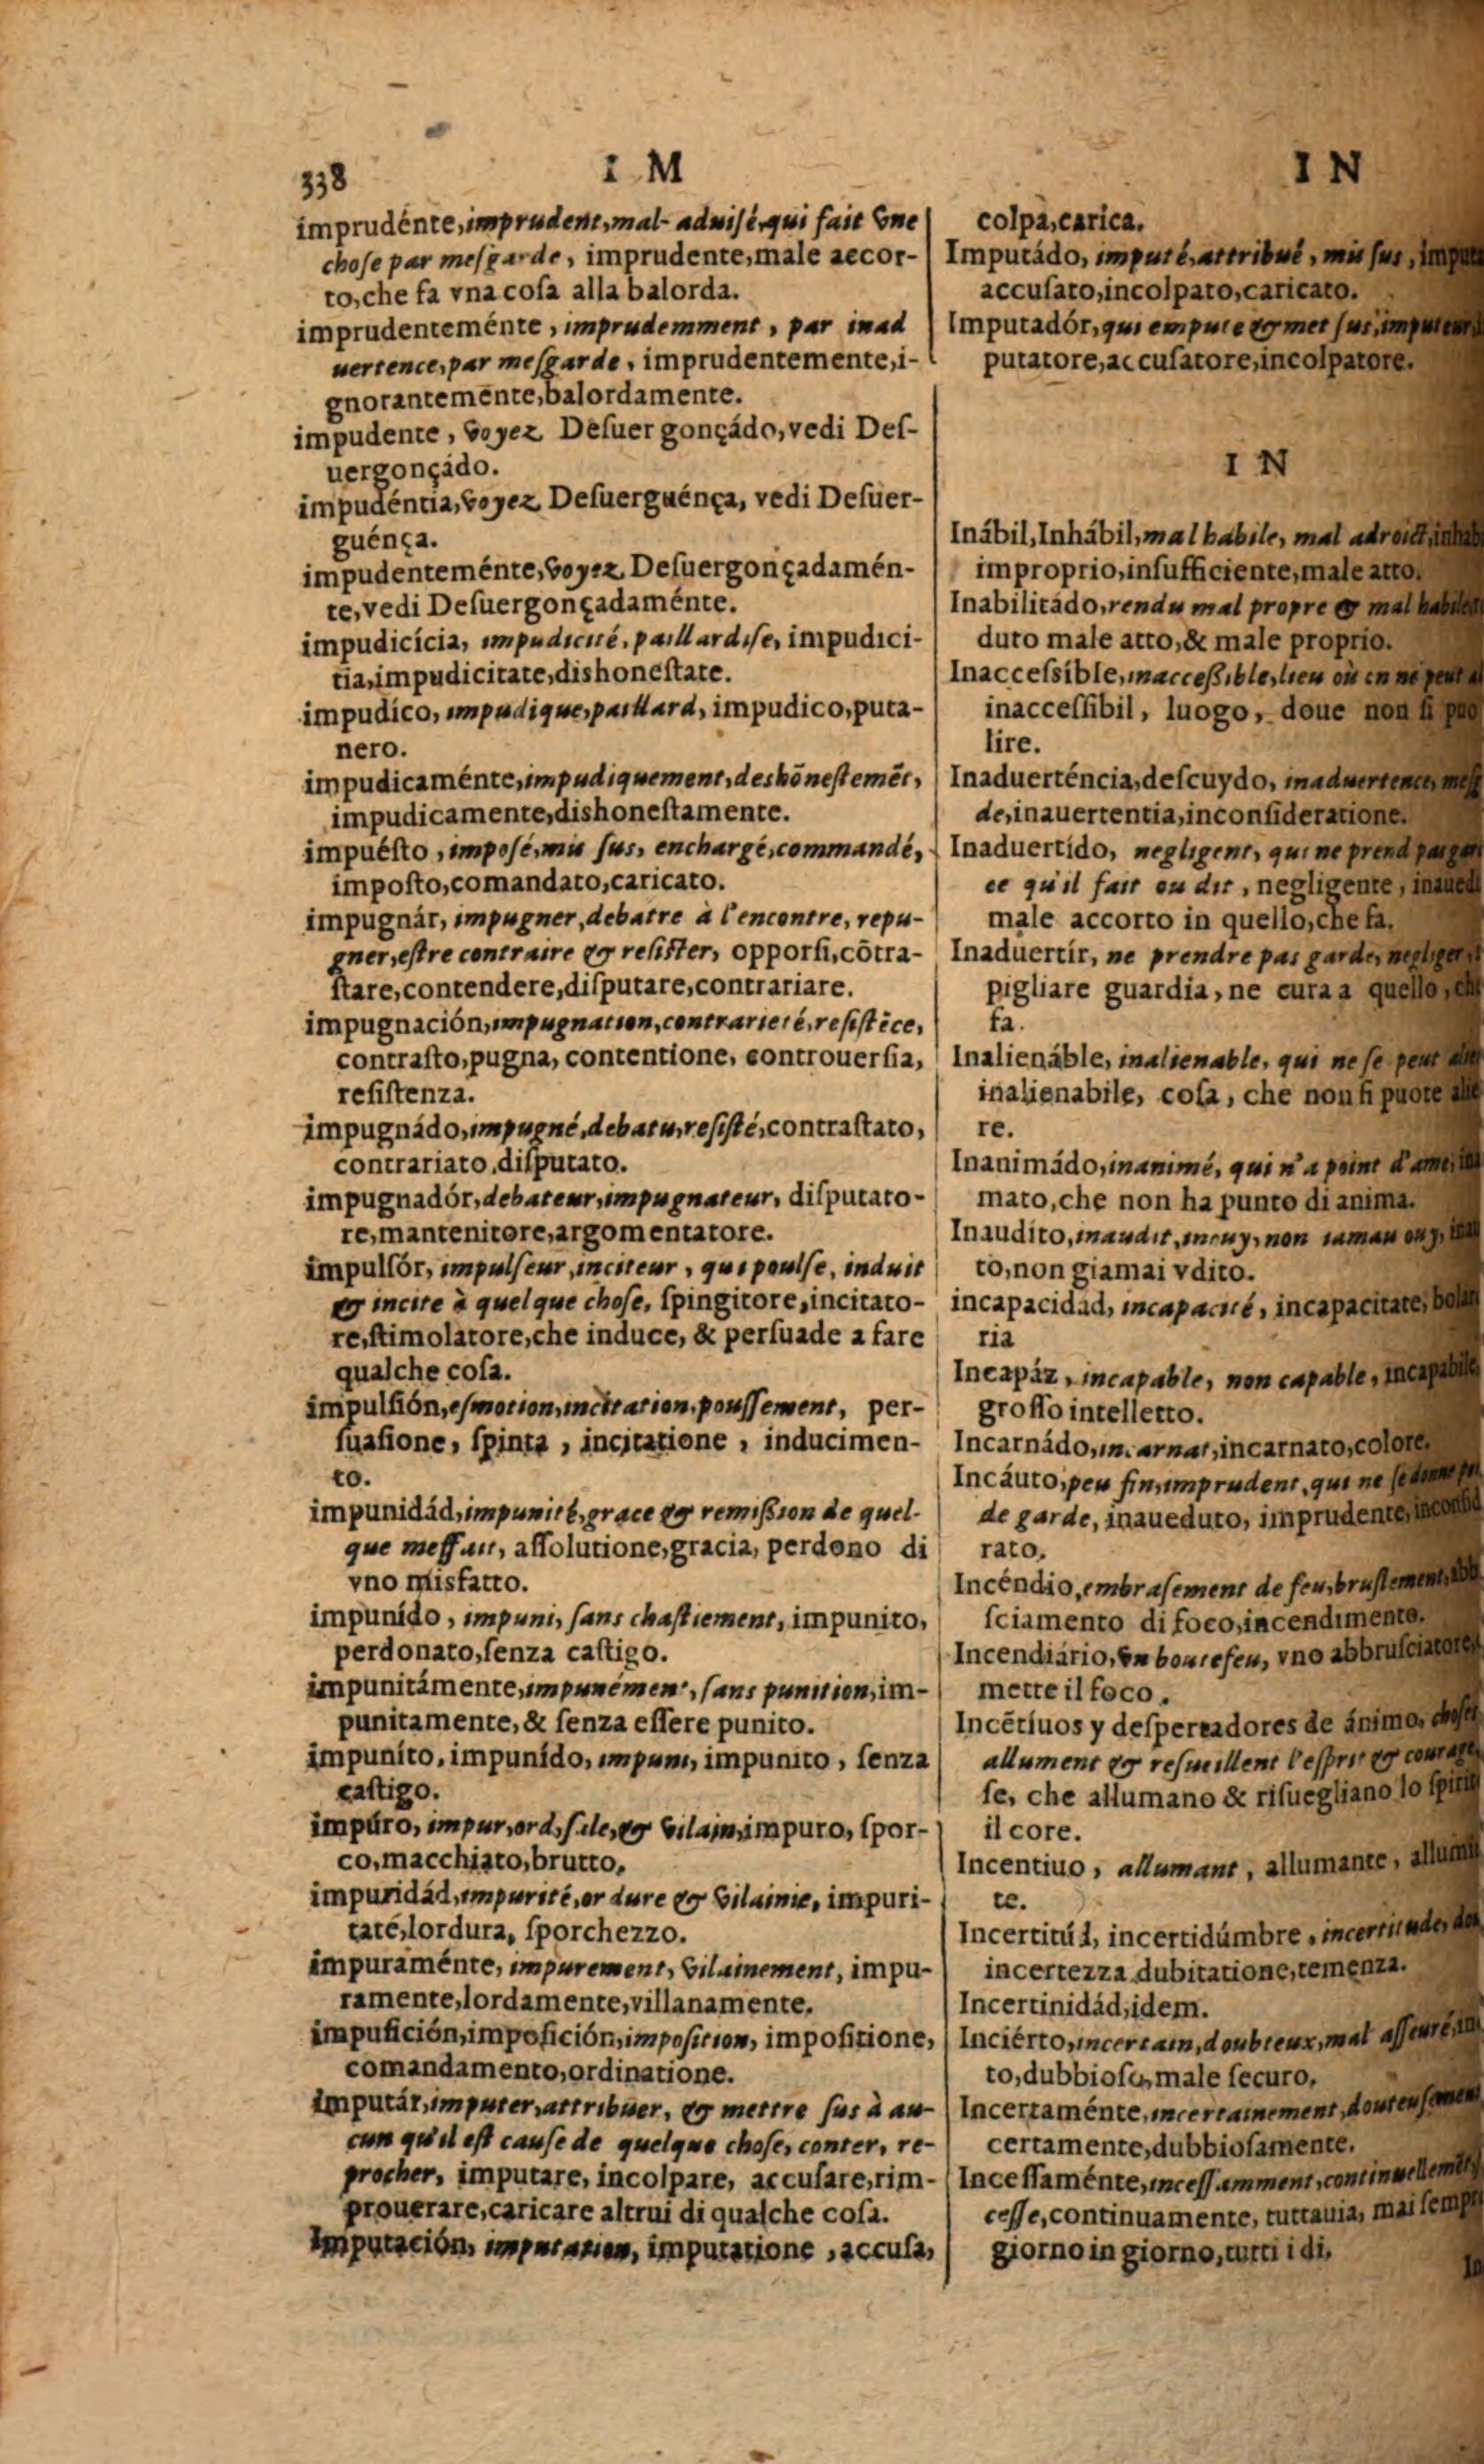 338
I M
imprudénte, imprudent, mal-aduisé, qui fait vne
chose par mesgarde, imprudente, male accor-
to, che fa vna cosa alla balorda.
imprudenteménte, imprudemment, par inad
uertence, par mesgarde, imprudentemente, i-
gnorantemēnte, balordamente.
impudente, voyez Desuergonçádo, vedi Des-
uergonçádo.
impudéntia, voyez Desuerguénça, vedi Desuer-
guénça.
impudenteménte, voyez Desuergonçadamén-
te, vedi Desuergonçadaménte.
impudicícia, impudicité, paillardise, impudici-
tia, impudicitate, dishonestate.
impudíco, impudique, paillard, impudico, puta-
nero.
impudicaménte, impudiquement, deshōnestemēt,
impudicamente, dishonestamente.
impuésto, imposé, mis sus, enchargé, commandé,
imposto, comandato, caricato.
impugnár, impugner, debatre à l'encontre, repu-
gner, estre contraire & resister, opporsi, cōtra-
stare, contendere, disputare, contrariare.
impugnación, impugnation, contrarieté, resistēce,
contrasto, pugna, contentione, controuersia,
resistenza.
impugnádo, impugné, debatu, resisté, contrastato,
contrariato, disputato.
impugnadór, debateur, impugnateur, disputato-
re, mantenitore, argomentatore.
impulsór, impulseur, inciteur, qui poulse, induit
& incite à quelque chose, spingitore, incitato-
re, stimolatore, che induce, & persuade a fare
qualche cosa.
impulsión, esmotion, incitation, poussement, per-
suasione, spinta, incitatione, inducimen-
to.
impunidád, impunité, grace & remission de quel-
que meffait, assolutione, gracia, perdono di
vno misfatto.
impunído, impuni, sans chastiement, impunito,
perdonato, senza castigo.
impunitámente, impunément, sans punition, im-
punitamente, & senza essere punito.
impuníto, impunído, impuni, impunito, senza
castigo.
impúro, impur, ord, sale, & vilain, impuro, spor-
co, macchiato, brutto,
impuridád, impurité, ordure & vilainie, impuri-
taté, lordura, sporchezzo.
impuraménte, impurement, vilainement, impu-
ramente, lordamente, villanamente.
impusición, imposición, imposition, impositione,
comandamento, ordinatione.
imputár, imputer, attribuer, & mettre sus à au-
cun qu'il est cause de quelque chose, conter, re-
procher, imputare, incolpare, accusare, rim-
prouerare, caricare altrui di qualche cosa.
Imputación, imputation, imputatione, accusa,
I N
colpa, carica.
Imputádo, imputé, attribué, mis sus,
accusato, incolpato, caricato.
Imputadór, qui empute & met sus, imputeur,
putatore, accusatore, incolpatore.
I N
Inábil, Inhábil, mal habile, mal adroict,
improprio, insufficiente, male atto.
Inabilitádo, rendu mal propre & mal
duto male atto, & male proprio.
Inaccessible, inaccessible, lieu où on ne peut
inaccessibil, luogo, doue non si puo
lire.
Inaduerténcia, descuydo, inaduertence,
de, inauertentia, inconsideratione.
Inaduertído, negligent, qui ne prend pas
ce qu'il fait ou dit, negligente,
male accorto in quello, che fa.
Inaduertír, ne prendre pas garde, negliger,
pigliare guardia, ne cura a quello,
fa.
Inalienáble, inalienable, qui ne se peut
inalienabile, cosa, che non si puote
re.
Inanimádo, inanimé, qui n'a point d'ame,
mato, che non ha punto di anima.
Inaudito, inaudit, inouy, non iamais ouy,
to, non giamai vdito.
incapacidad, incapacité, incapacitate,
ria
Incapáz, incapable, non capable,
grosso intelletto.
Incarnádo, incarnat, incarnato, colore.
Incáuto, peu fin, imprudent, qui ne se donne
de garde, inaueduto, imprudente,
rato.
Incéndio, embrasement de feu, bruslement,
sciamento di foco, incendimento.
Incendiário, vn boutefeu, vno abbrusciatore,
mette il foco.
Incētíuos y despertadores de ánimo,
allument & resueillent l'esprit & courage,
se, che allumano & risuegliano lo
il core.
Incentiuo, allumant, allumante,
te.
Incertitúd, incertidúmbre, incertitude,
incertezza dubitatione, temenza.
Incertinidád, idem.
Inciérto, incertain, doubteux, mal asseuré,
to, dubbioso, male securo.
Incertaménte, incertainement,
certamente, dubbiosamente.
Incessaménte, incessamment,
cesse, continuamente, tuttauia, mai
giorno in giorno, tutti i di.